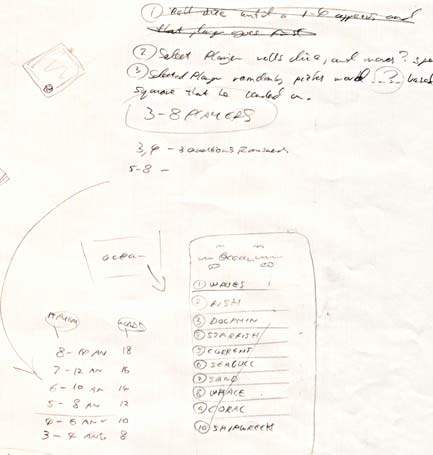 ① Roll dice until a 1-6 appears and
that player goes first
② Select Player rolls dice, and moves ?
③ Selected Player randomly picks word ? based
square that he landed on.
3-8 PLAYERS
3,4 - 3
5-8 -
ocean
Ocean
① WAVES
② FISH
③ DOLPHIN
④ STARFISH
⑤ CURRENT
⑥ SEAGULL
⑦ SAND
⑧ WHALE
⑨ CORAL
⑩ SHIPWRECK
8 - 14 AN 18
7 - 12 AN 16
6 - 10 AN 14
5 - 8 AN 12
4 - 6 ANS 10
3 - 4 ANS 8